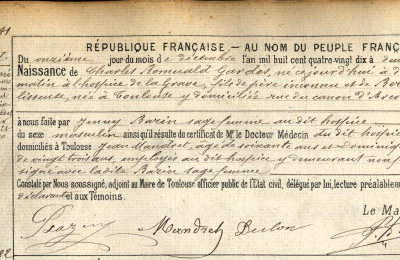 RÉPUBLIQUE FRANÇAISE — AU NOM DU PEUPLE FRANÇ
Du onzième jour du mois de décembre l'an mil huit cent quatre-vingt dix à
Naissance de Charles Romuald Gardès, né cejourd'hui à d
matin à l'hospice de la Grave, fils de père inconnu et de Ber
lisseuse, née à Toulouse y domiciliée rue du canon d'Arco
à nous faite par Jenny Bazin sage femme au dit hospice
du sexe masculin ainsi qu'il résulte du certificat de Mr le Docteur Médecin du dit hospice
domiciliés à Toulouse Jean Mandret, âgé de soixante ans et Dominiq
de vingt trois ans, employés au dit hospice y demeurant non p
signé avec la dite Bazin sage femme
Constaté par Nous soussigné, adjoint au Maire de Toulouse officier public de l'Etat civil, délégué par lui, lecture préalablem
déclarante et aux Témoins.
Le Ma
Mandret Dulon